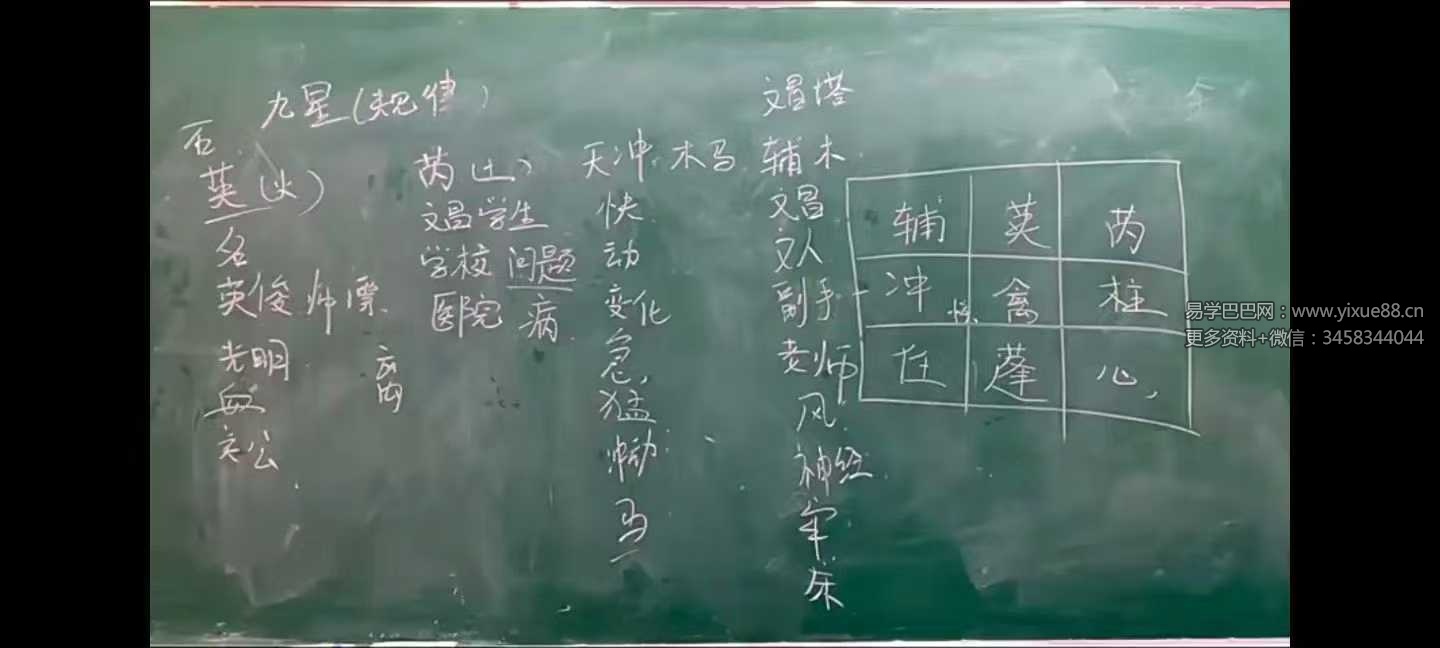 九星(规律)
英(火)
名
英俊 帅 漂
光明
血
关公
离
芮(土)
文昌学生
学校 问题
医院 病
天冲 木马
快
动
变化
急
猛
冲动
马
文昌塔
辅木
文昌
文人
副手
老师
风
神经
辅 英 芮
冲 禽 柱
任 蓬 心
易学巴巴网:www.yixue88.cn
更多资料+微信:3458344044